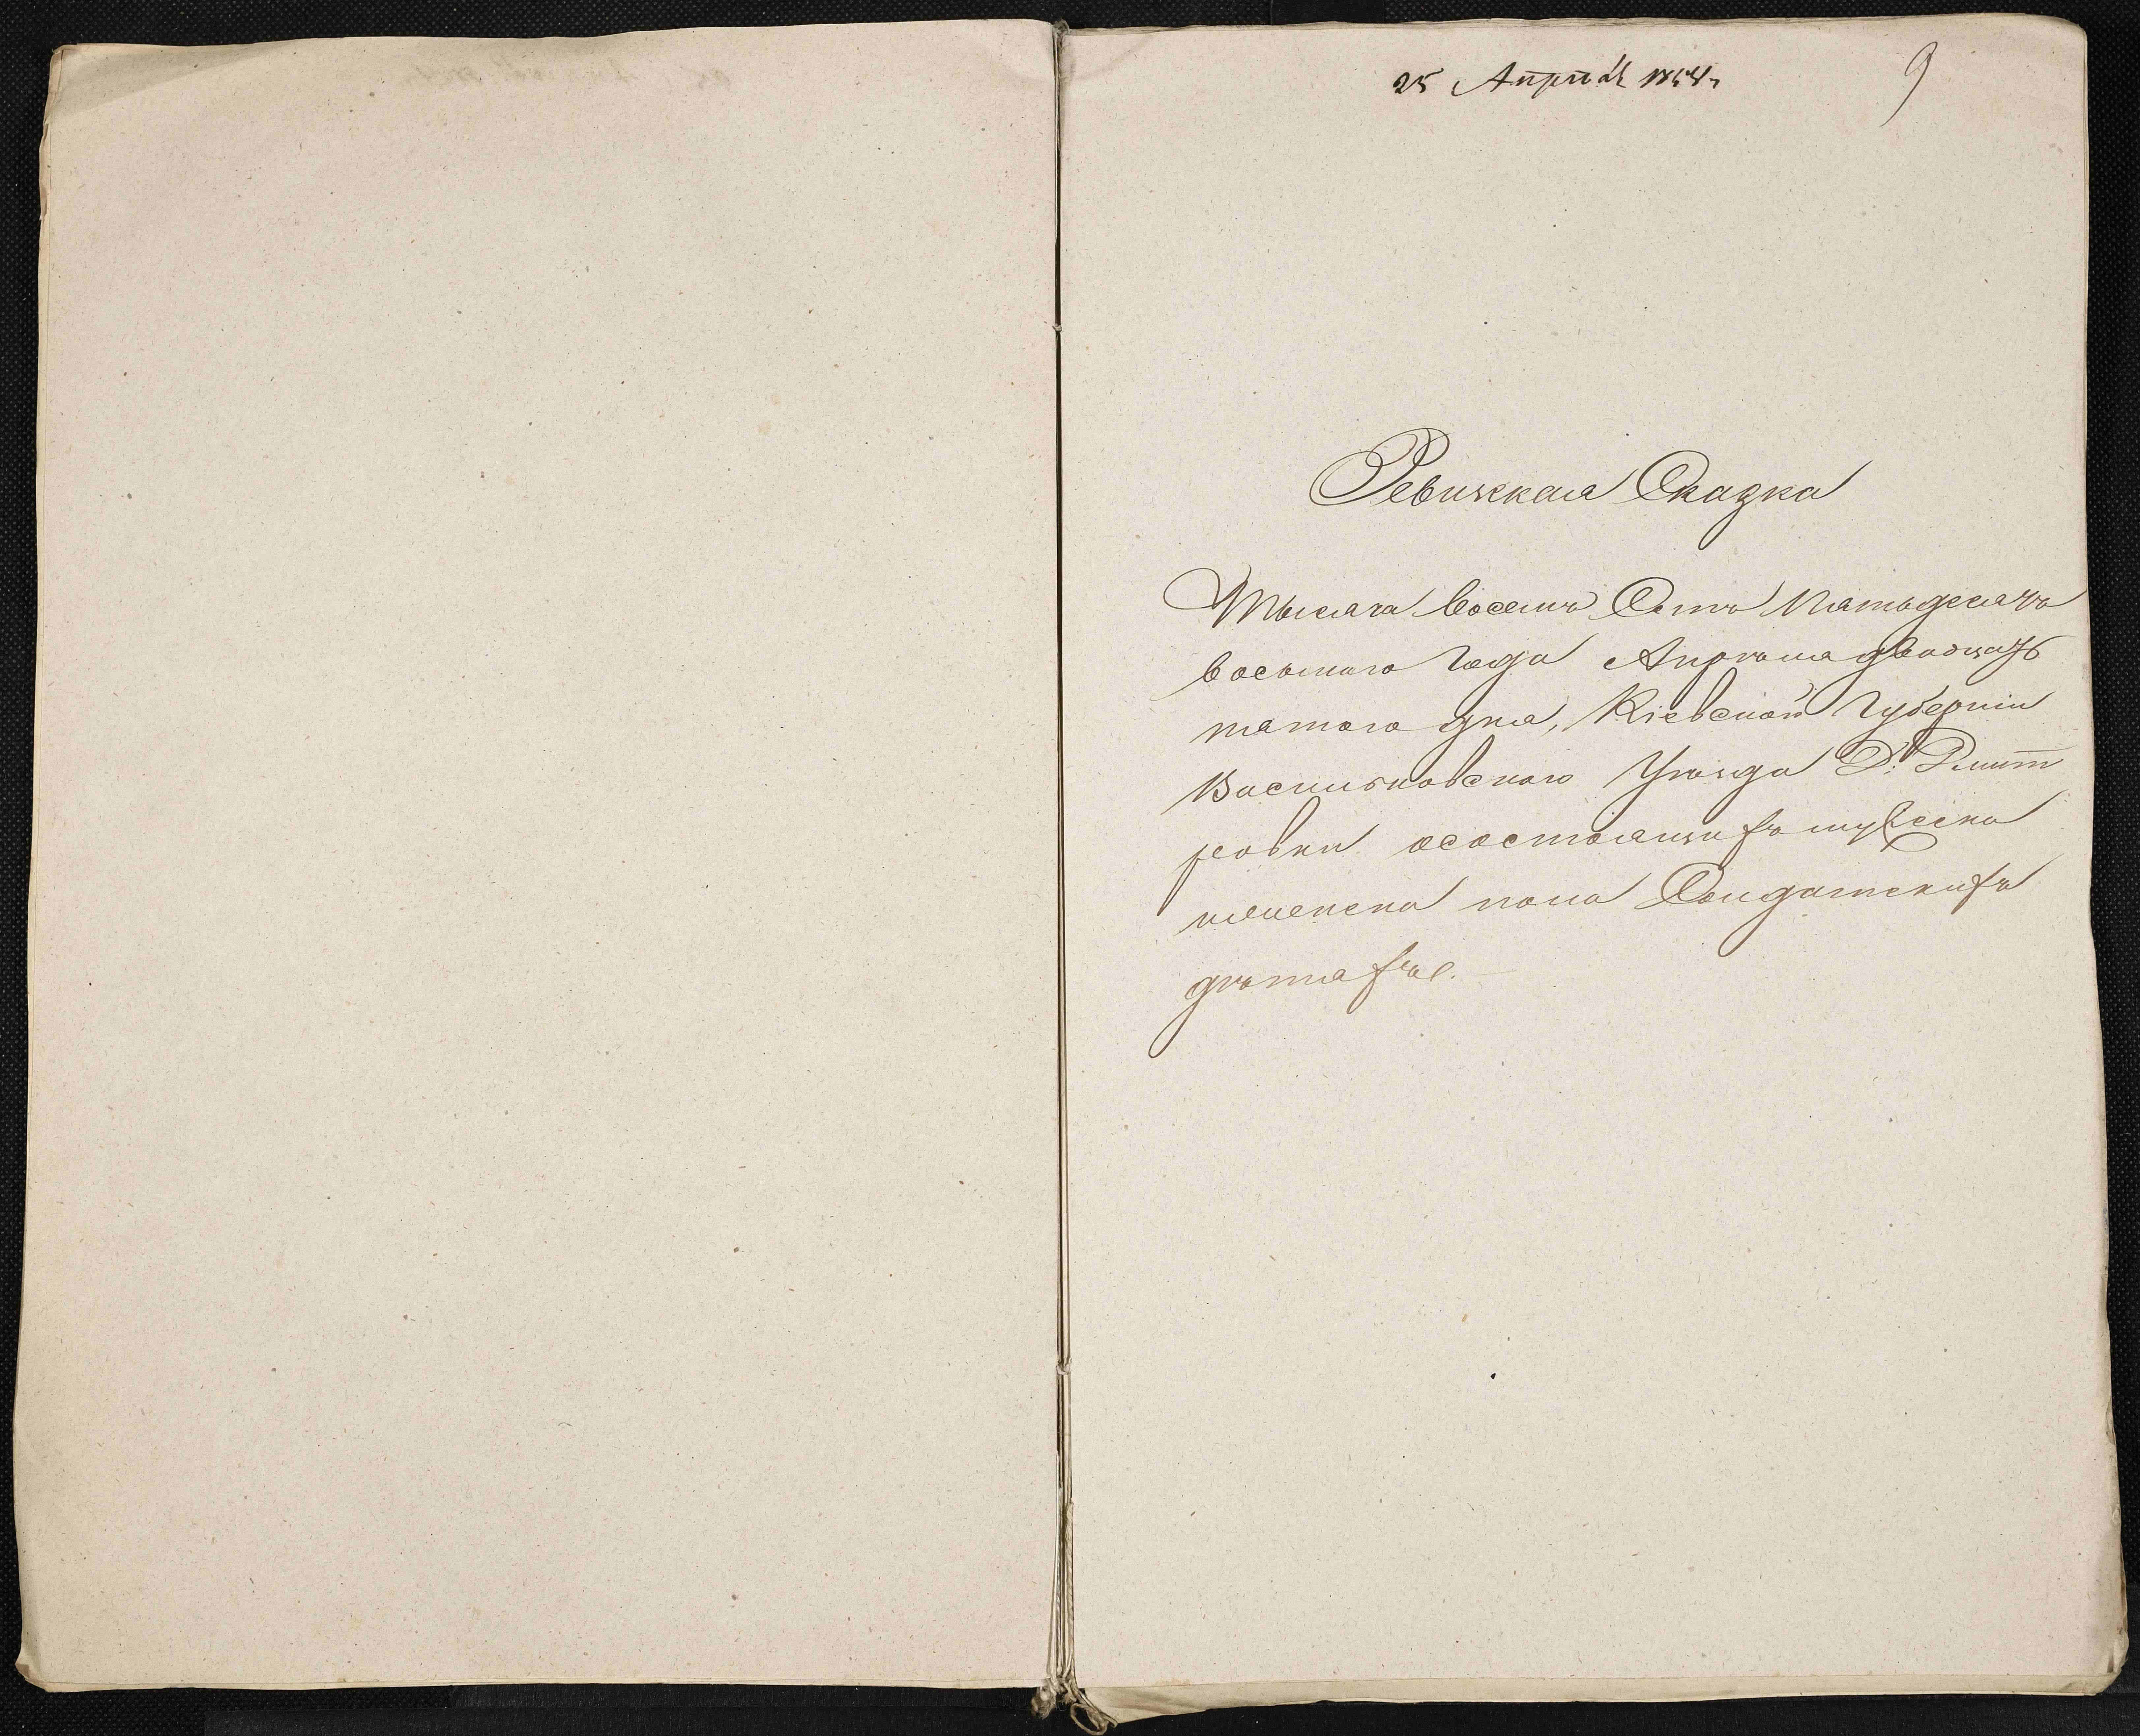 25 Апрѣля 1858 г
9
Ревижкая Сказка
Тысяча восемъ Сотъ Пятьдесятъ
восьмаго года Апрѣля двадцать
пятого дня, Кіевской Губерніи
Васильковскаго Уѣзда Д: Дмит
ровки осостоящихъ мужеска
иженска пола Солдатскихъ
дѣтяхъ.